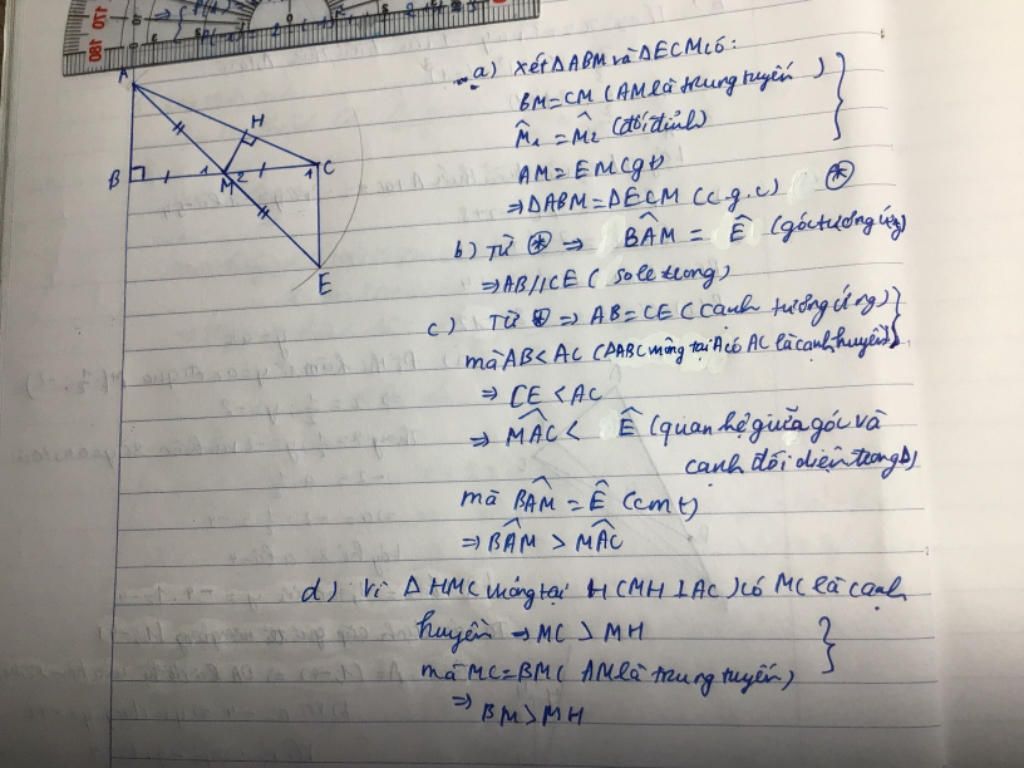 a) Xét ΔABM và ΔECM có:
BM=CM (AM là trung tuyến)
M̂₁ = M̂₂ (đối đỉnh)
AM = EM (gt)
⇒ ΔABM = ΔECM (c.g.c) ⊛
b) Từ ⊛ ⇒ BÂM = Ê (góc tương ứng)
⇒ AB // CE (so le trong)
c) Từ ⊛ ⇒ AB = CE (cạnh tương ứng)
mà AB < AC (ΔABC vuông tại A có AC là cạnh huyền)
⇒ CE < AC
⇒ MÂC < Ê (quan hệ giữa góc và
cạnh đối diện trong Δ)
mà BÂM = Ê (cmt)
⇒ BÂM > MÂC
d) Vì ΔHMC vuông tại H (MH ⊥ AC) có MC là cạnh
huyền ⇒ MC > MH
mà MC = BM (AM là trung tuyến)
⇒ BM > MH
A
H
B
1
M
2
1
C
E